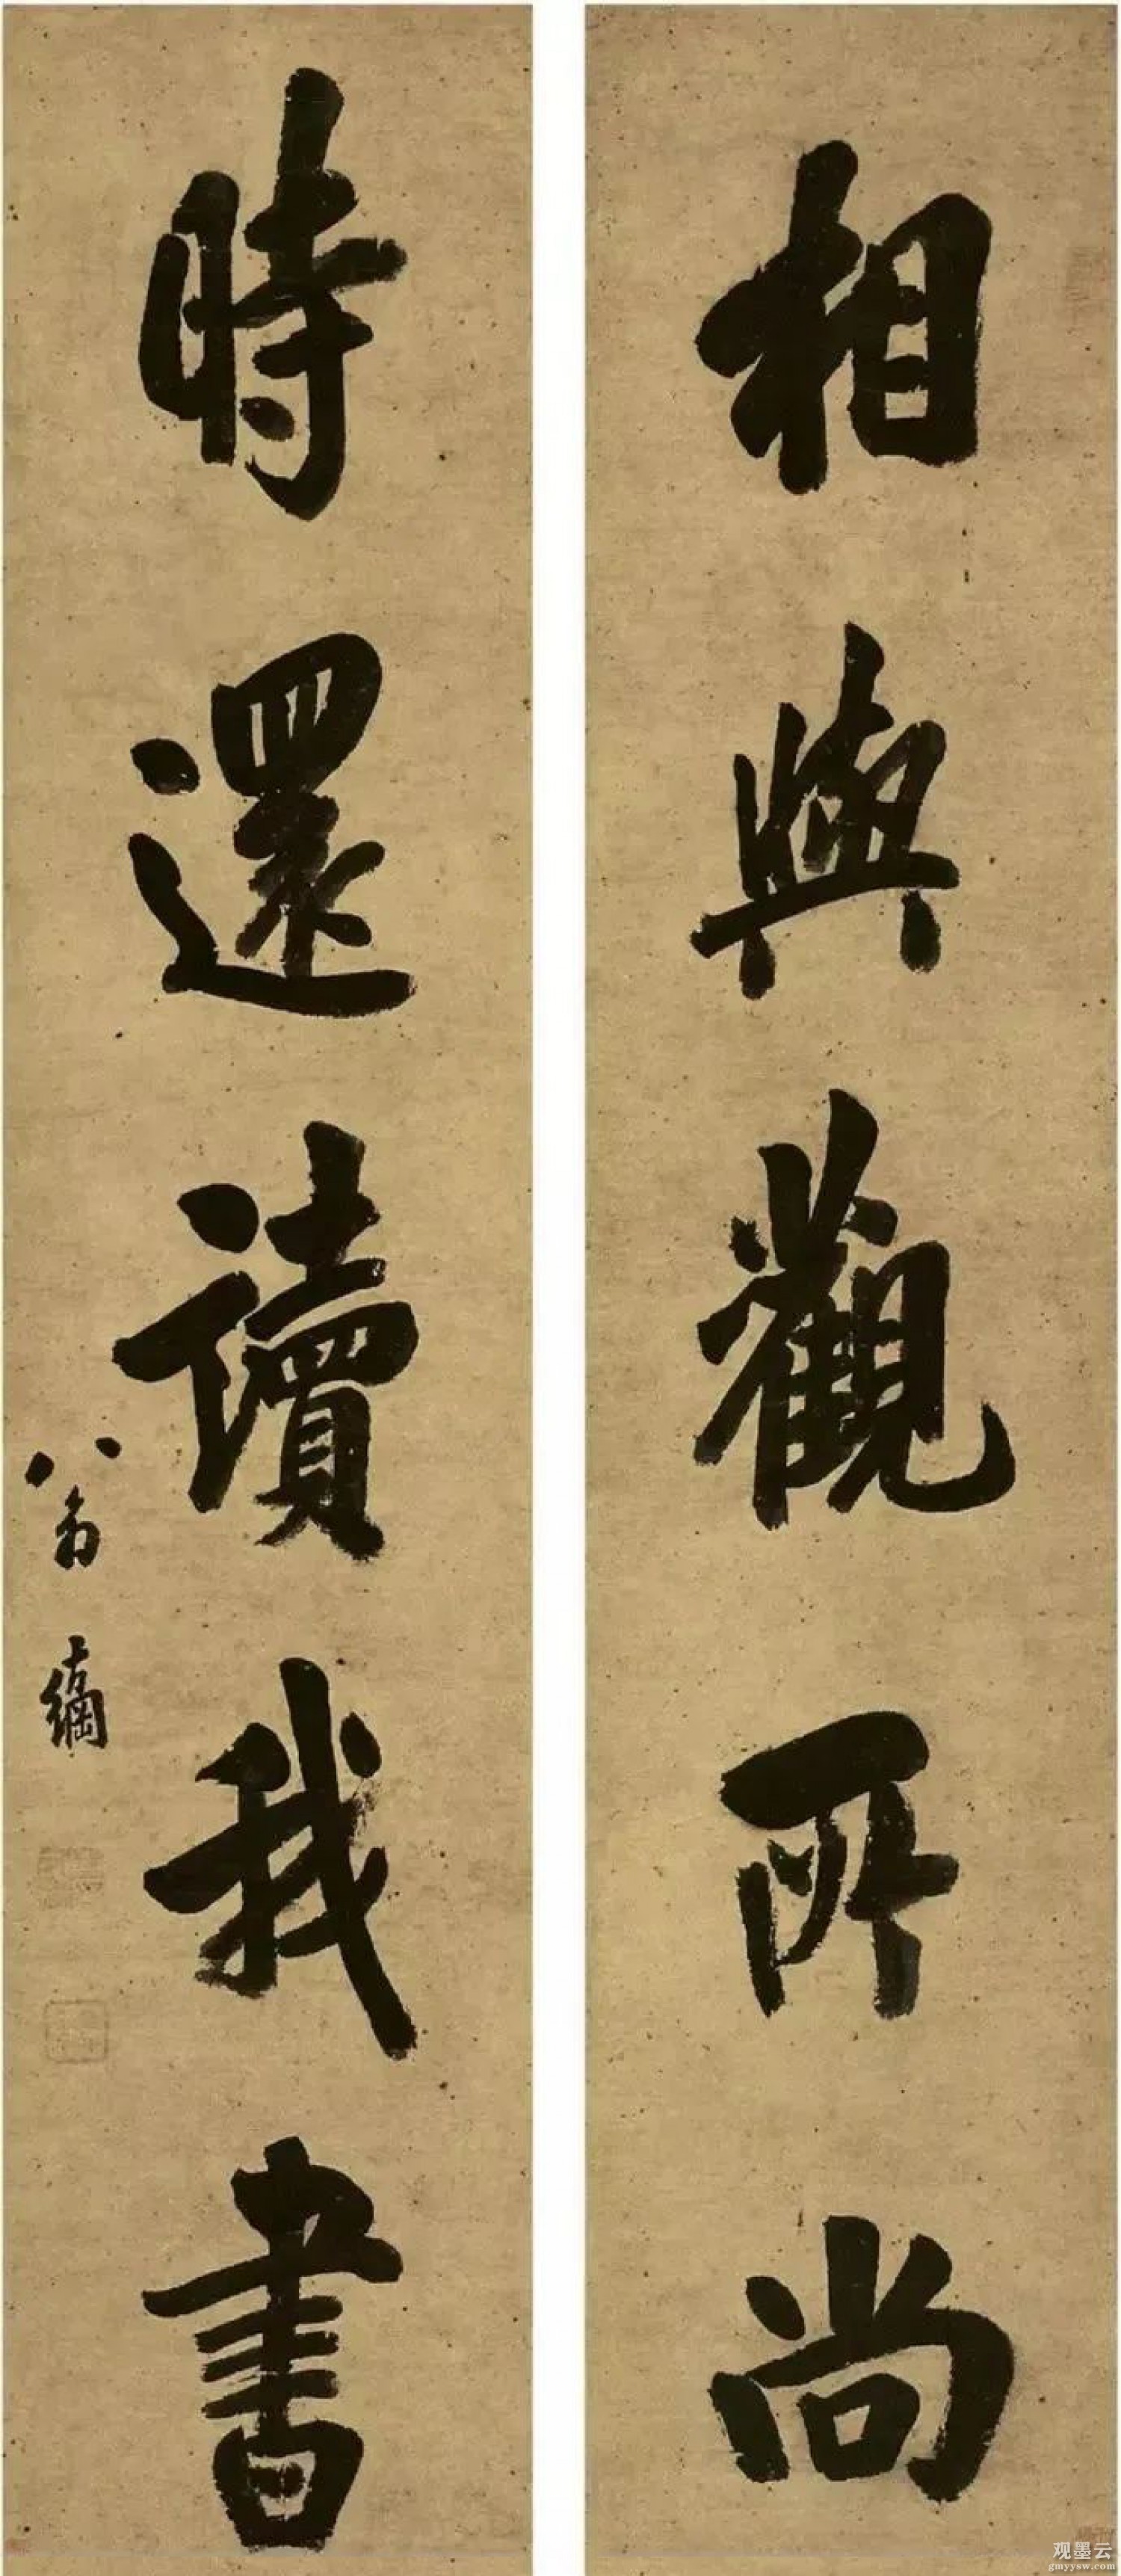 相與觀所尚
時還讀我書
翁方綱
观墨云
gmyysw.com